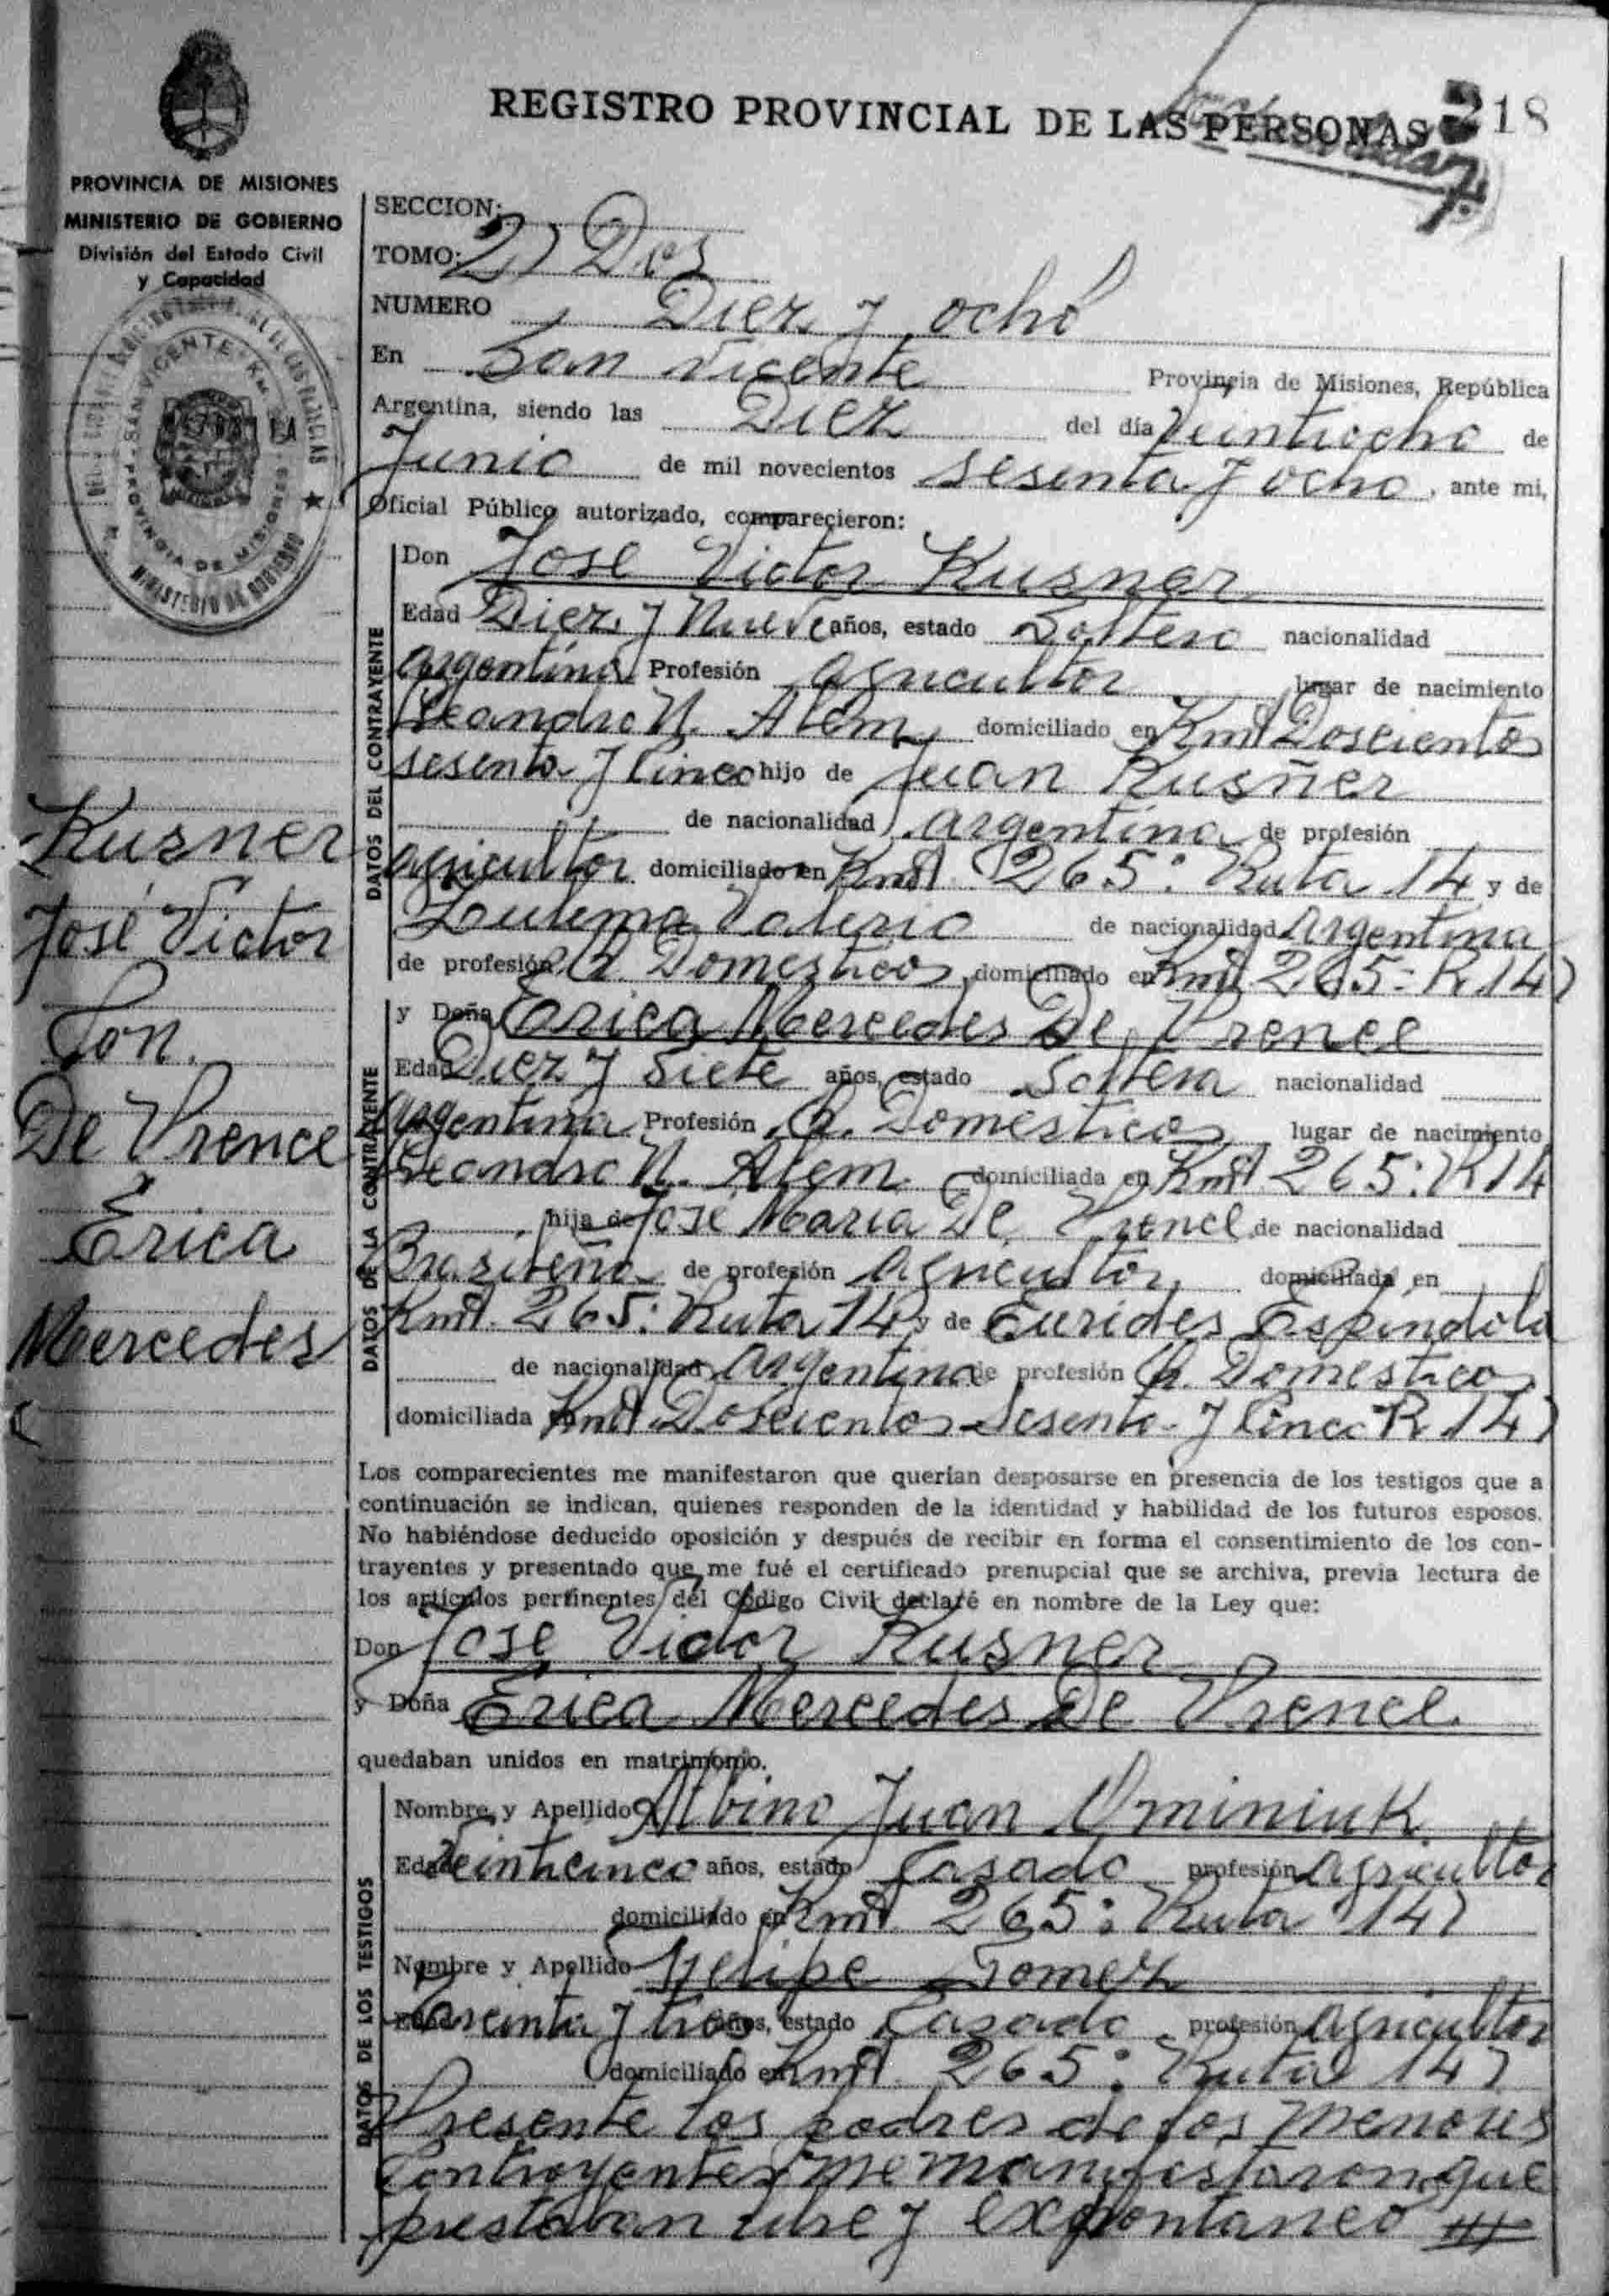 REGISTRO PROVINCIAL DE LAS PERSONAS
218
PROVINCIA DE MISIONES
MINISTERIO DE GOBIERNO
División del Estado Civil
y Capacidad
SAN VICENTE - KM.
PROVINCIA DE MISIONES
MINISTERIO DE GOBIERNO
SECCION:
TOMO: 2) Dos
NUMERO Diez y ocho
En San Vicente Provincia de Misiones, República
Argentina, siendo las Diez del día Veintiocho de
Junio de mil novecientos sesenta y ocho, ante mi,
Oficial Público autorizado, comparecieron:
DATOS DEL CONTRAYENTE
Don Jose Victor Kusner
Edad Diez y Nueve años, estado Soltero nacionalidad
argentina Profesión agricultor lugar de nacimiento
Leandro N. Alem domiciliado en Kmt Doscientos
sesenta y Cinco hijo de Juan Kusñer
de nacionalidad argentina de profesión
agricultor domiciliado en Kmt 265: Ruta 14 y de
Zulema Valerio de nacionalidad Argentina
de profesión Q. Domesticos domiciliado en Kmt 265: R 14)
Kusner
José Victor
Con.
De Vrence
Erica
Mercedes
DATOS DE LA CONTRAYENTE
y Doña Erica Mercedes De Vrence
Edad Diez y Siete años, estado Soltera nacionalidad
argentina Profesión Q. Domesticos lugar de nacimiento
Leandro N. Alem domiciliada en Kmt 265: R 14
hija de Jose Maria De Vrence de nacionalidad
Brasileña de profesión agricultor domiciliada en
Kmt. 265: Ruta 14 y de Eurides Espindola
de nacionalidad argentina de profesión Q. Domestico
domiciliada en Kmt Doscientos Sesenta y Cinco R 14)
Los comparecientes me manifestaron que querían desposarse en presencia de los testigos que a
continuación se indican, quienes responden de la identidad y habilidad de los futuros esposos.
No habiéndose deducido oposición y después de recibir en forma el consentimiento de los con-
trayentes y presentado que me fué el certificado prenupcial que se archiva, previa lectura de
los artículos pertinentes del Código Civil declaré en nombre de la Ley que:
Don Jose Victor Kusner
y Doña Erica Mercedes De Vrence
quedaban unidos en matrimonio.
DATOS DE LOS TESTIGOS
Nombre y Apellido Albino Juan Ominiuk
Edad Veinticinco años, estado Casado profesión agricultor
domiciliado en Kmt 265: Ruta 14)
Nombre y Apellido Felipe Gomez
Edad Treinta y tres años, estado Casado profesión agricultor
domiciliado en Kmt. 265: Ruta 14)
Presente los padres de los menores
Contrayentes me manifestaron que
prestaban libre y expontaneo